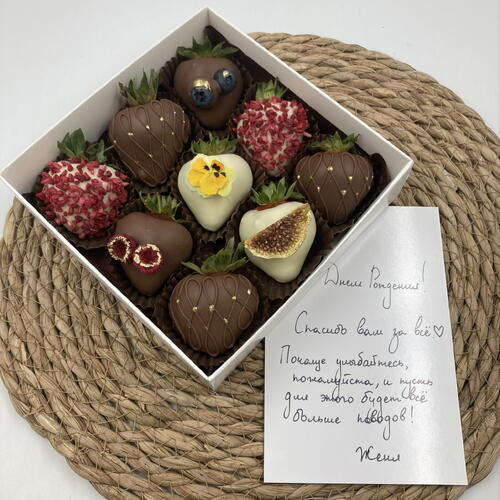 Днем Рождения!
Спасибо вам за всё♡
Почаще улыбайтесь,
пожалуйста, и пусть
для этого будет всё
больше поводов!
Женя